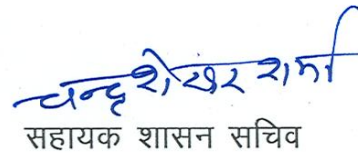 चन्द्रशेखर शर्मा
सहायक शासन सचिव